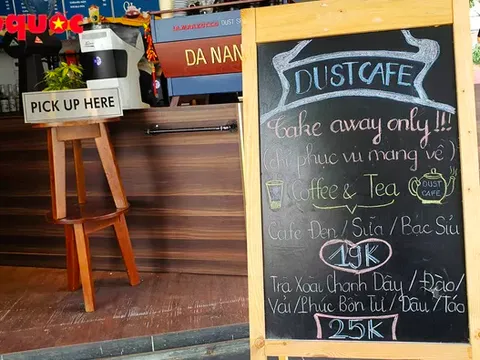 QUỐC
DA NAN
PICK UP HERE
DUST CAFE
Take away only!!!
(chỉ phục vụ mang về)
Coffee & Tea
DUST
CAFE
Cafe Đen / Sữa / Bạc Sỉu
19K
Trà Xoài Chanh Dây / Đào /
Vải / Phúc Bồn Tử / Dâu / Táo
25K